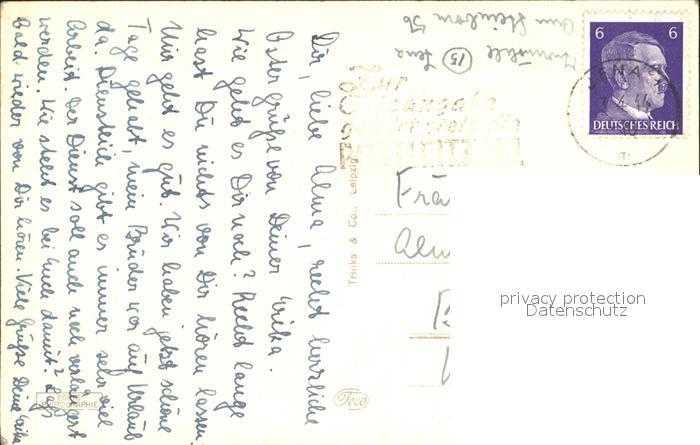 Dir, liebe Alma, recht herzliche
Ostergrüße von Deiner Erika.
Wie geht es Dir noch? Recht lange
hast Du nichts von Dir hören lassen.
Mir geht es gut. Wir haben jetzt schöne
Tage gehabt, mein Bruder war auf Urlaub
da. Diensteile gibt es immer sehr viel
Arbeit. Der Dienst soll auch noch verlängert
werden. Wie steht es bei Euch damit? Lass
bald wieder von Dir hören. Viele Grüße Deine Erika
(15) Jena
Am Steinborn 56
Zur
Ortsangabe
gehört stets die
POSTLEITZAHL
6 6
DEUTSCHES REICH
JENA
Trinks & Co., Leipzig
Frä
Alm
privacy protection
Datenschutz
ECHTE
PHOTOGRAPHIE
Teco